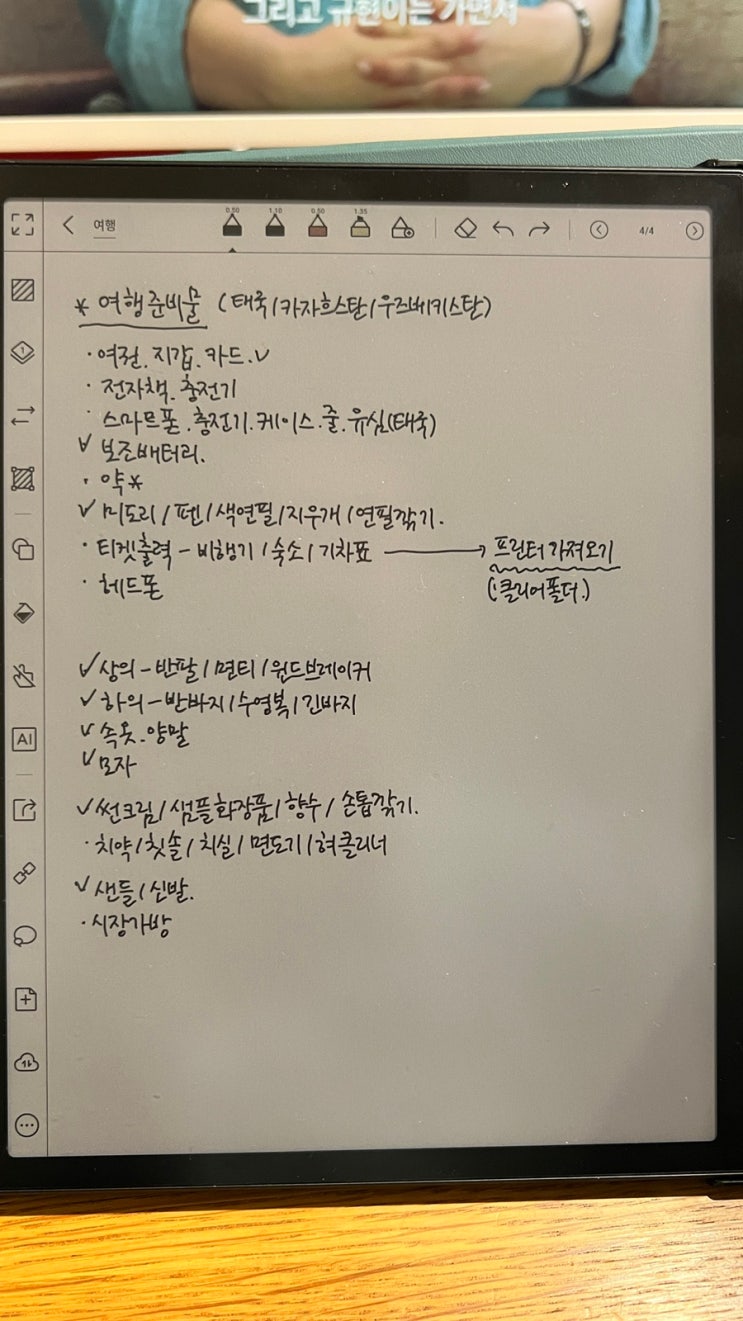 그리고 규현이는 가면서
여행
0.50 1.10 0.50 1.35
4/4
* 여행준비물 (태국/카자흐스탄/우즈베키스탄)
· 여권. 지갑. 카드. ✓
· 전자책. 충전기
· 스마트폰. 충전기. 케이스. 줄. 유심(태국)
✓ 보조배터리.
· 약*
✓ 미도리 / 펜 / 색연필 / 지우개 / 연필깎기.
· 티켓출력 - 비행기 / 숙소 / 기차표 → 프린터 가져오기
(클리어폴더.)
· 헤드폰
✓ 상의 - 반팔 / 면티 / 윈드브레이커
✓ 하의 - 반바지 / 수영복 / 긴바지
✓ 속옷. 양말
✓ 모자
✓ 썬크림 / 샘플화장품 / 향수 / 손톱깎기.
· 치약 / 칫솔 / 치실 / 면도기 / 혀클리너
✓ 샌들 / 신발.
· 시장가방
AI